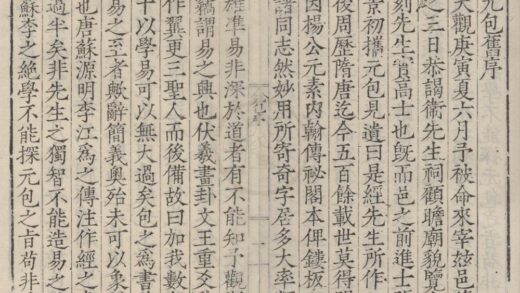 元包舊序
大觀庚寅夏六月予被命來宰茲邑
之三日恭謁衞先生祠顧瞻廟貌覽
刻先生實高士也旣而邑之前進士
景初攜元包見遺曰是經先生所作
後周歷隋唐迄今五百餘載世莫得
因楊公元素内翰傳祕閣本俾鋟板
諸同志然妙用所寄奇字居多大率
雄準易非深於道者有不能知予觀
竊謂易之興也伏羲畫卦文王重爻
作翼更三聖人而後備故曰加我數
十以學易可以無大過矣包之爲書
易之至者歟辭簡義奥殆未可以象
也唐蘇源明李江爲之傳注作經之
過半矣非先生之獨智不能造易之
蘇李之絶學不能探元包之旨苟非